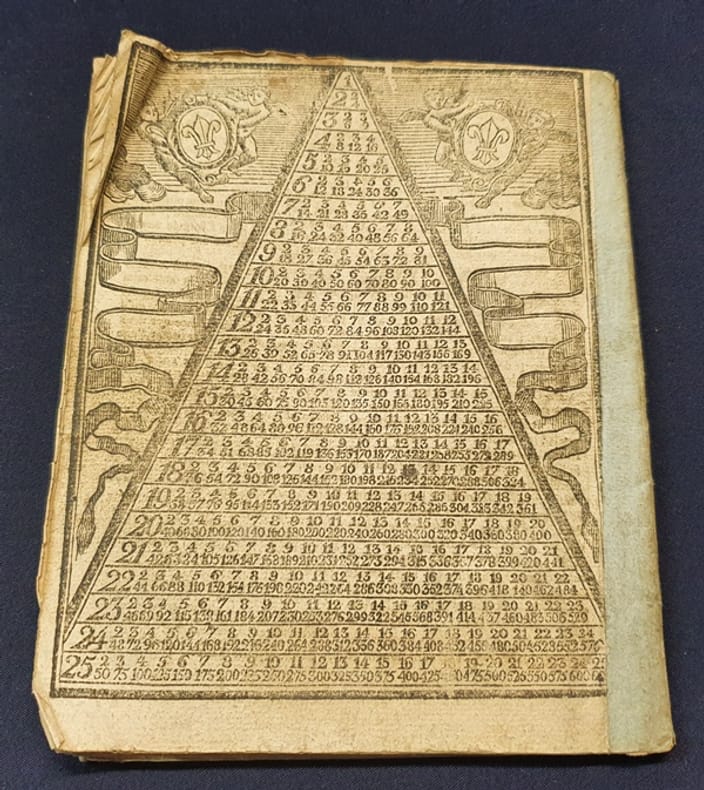 1
2 2
4
3 2 3
6 9
4 2 3 4
8 12 16
5 2 3 4 5
10 15 20 25
6 2 3 4 5 6
12 18 24 30 36
7 2 3 4 5 6 7
14 21 28 35 42 49
8 2 3 4 5 6 7 8
16 24 32 40 48 56 64
9 2 3 4 5 6 7 8 9
18 27 36 45 54 63 72 81
10 2 3 4 5 6 7 8 9 10
20 30 40 50 60 70 80 90 100
11 2 3 4 5 6 7 8 9 10 11
22 33 44 55 66 77 88 99 110 121
12 2 3 4 5 6 7 8 9 10 11 12
24 36 48 60 72 84 96 108 120 132 144
13 2 3 4 5 6 7 8 9 10 11 12 13
26 39 52 65 78 91 104 117 130 143 156 169
14 2 3 4 5 6 7 8 9 10 11 12 13 14
28 42 56 70 84 98 112 126 140 154 168 182 196
15 2 3 4 5 6 7 8 9 10 11 12 13 14 15
30 45 60 75 90 105 120 135 150 165 180 195 210 225
16 2 3 4 5 6 7 8 9 10 11 12 13 14 15 16
32 48 64 80 96 112 128 144 160 176 192 208 224 240 256
17 2 3 4 5 6 7 8 9 10 11 12 13 14 15 16 17
34 51 68 85 102 119 136 153 170 187 204 221 238 255 272 289
18 2 3 4 5 6 7 8 9 10 11 12 14 15 16 17 18
36 54 72 90 108 126 144 162 180 198 216 234 252 270 288 306 324
19 2 3 4 5 6 7 8 9 10 11 12 13 14 15 16 17 18 19
38 57 76 95 114 133 152 171 190 209 228 247 266 285 304 342 361
20 2 3 4 5 6 7 8 9 10 11 12 13 14 15 16 17 18 19 20
40 60 80 100 120 140 160 180 200 220 240 260 280 300 320 340 360 380 400
21 2 3 4 5 6 7 8 9 10 11 12 13 14 15 16 17 18 19 20 21
42 63 84 105 126 147 168 189 210 231 252 273 294 315 336 357 378 399 420 441
22 2 3 4 5 6 7 8 9 10 11 12 13 14 15 16 17 18 19 20 21 22
44 66 88 110 132 154 176 198 220 242 264 286 308 330 352 374 396 418 440 462 484
23 2 3 4 5 6 7 8 9 10 11 12 13 14 15 16 17 18 19 20 21 22 23
46 69 92 115 138 161 184 207 230 253 276 299 322 345 368 391 414 437 460 483 506 529
24 2 3 4 5 6 7 8 9 10 11 12 13 14 15 16 17 18 19 20 21 22 23 24
48 72 96 120 144 168 192 216 240 264 288 312 336 360 384 408 456 480 504 528 552 576
25 2 3 4 5 6 7 8 9 10 11 12 13 14 15 16 17 19 20 21 22 23 24
50 75 100 125 150 175 200 225 250 275 300 325 350 375 400 425 475 500 525 550 575 600